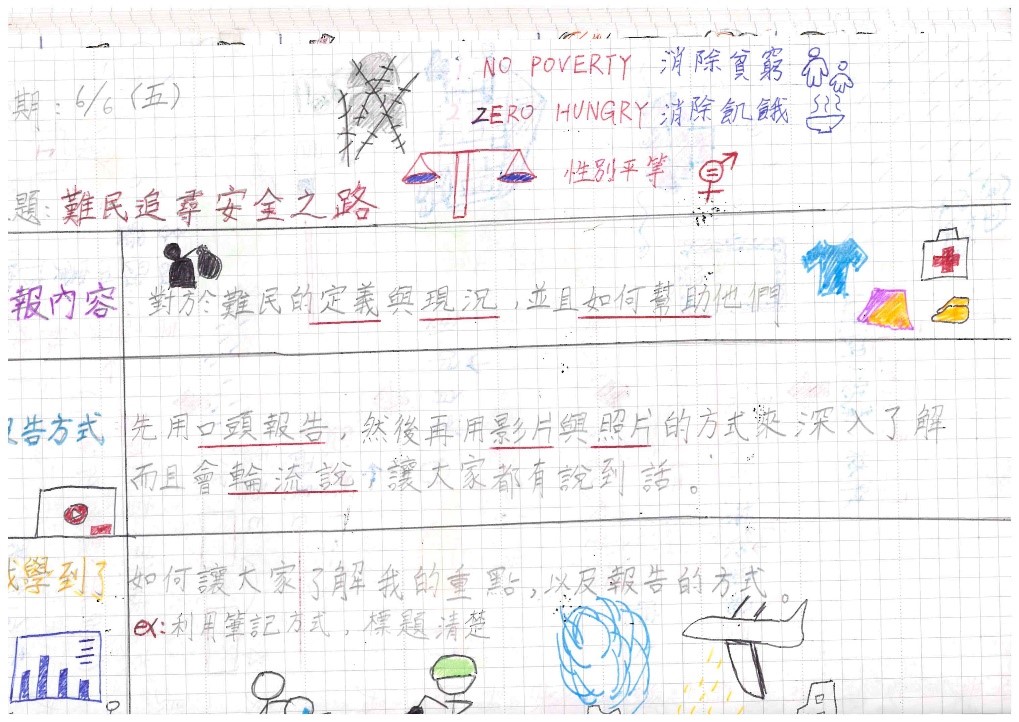 NO POVERTY 消除貧窮
期：6/6 (五)
ZERO HUNGRY 消除飢餓
性別平等
題：難民追尋安全之路
報內容
對於難民的定義與現況，並且如何幫助他們
告方式
先用口頭報告，然後再用影片與照片的方式來深入了解
而且會輪流說，讓大家都有說到話。
我學到了
如何讓大家了解我的重點，以及報告的方式
ex:利用筆記方式，標題清楚